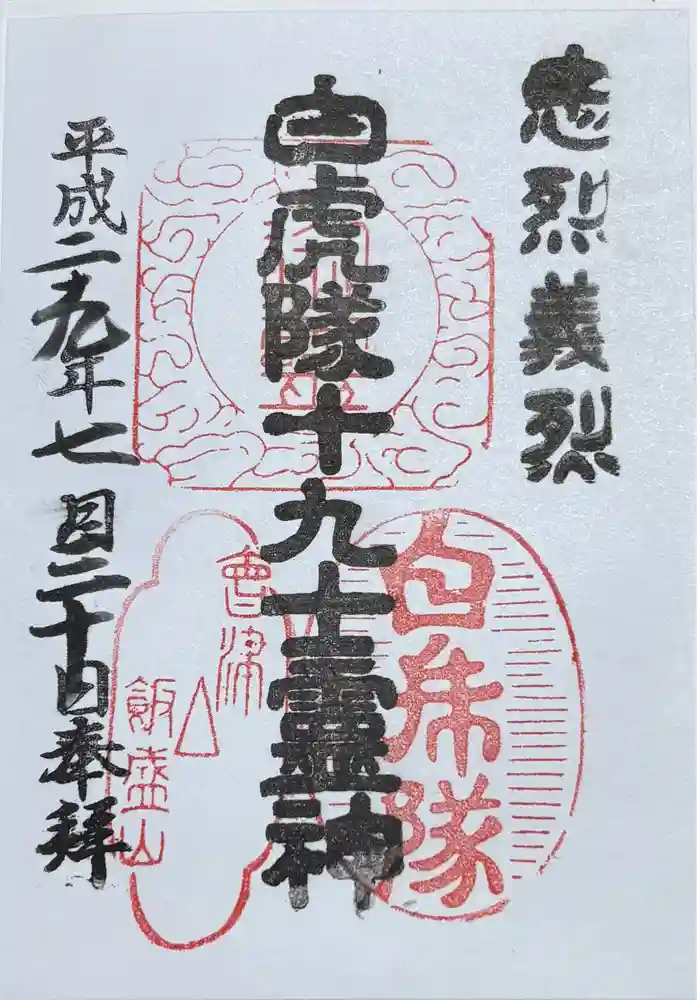 忠烈義烈
白虎隊十九士靈神
白虎隊
會津
飯盛山
平成二十九年七月二十日奉拝